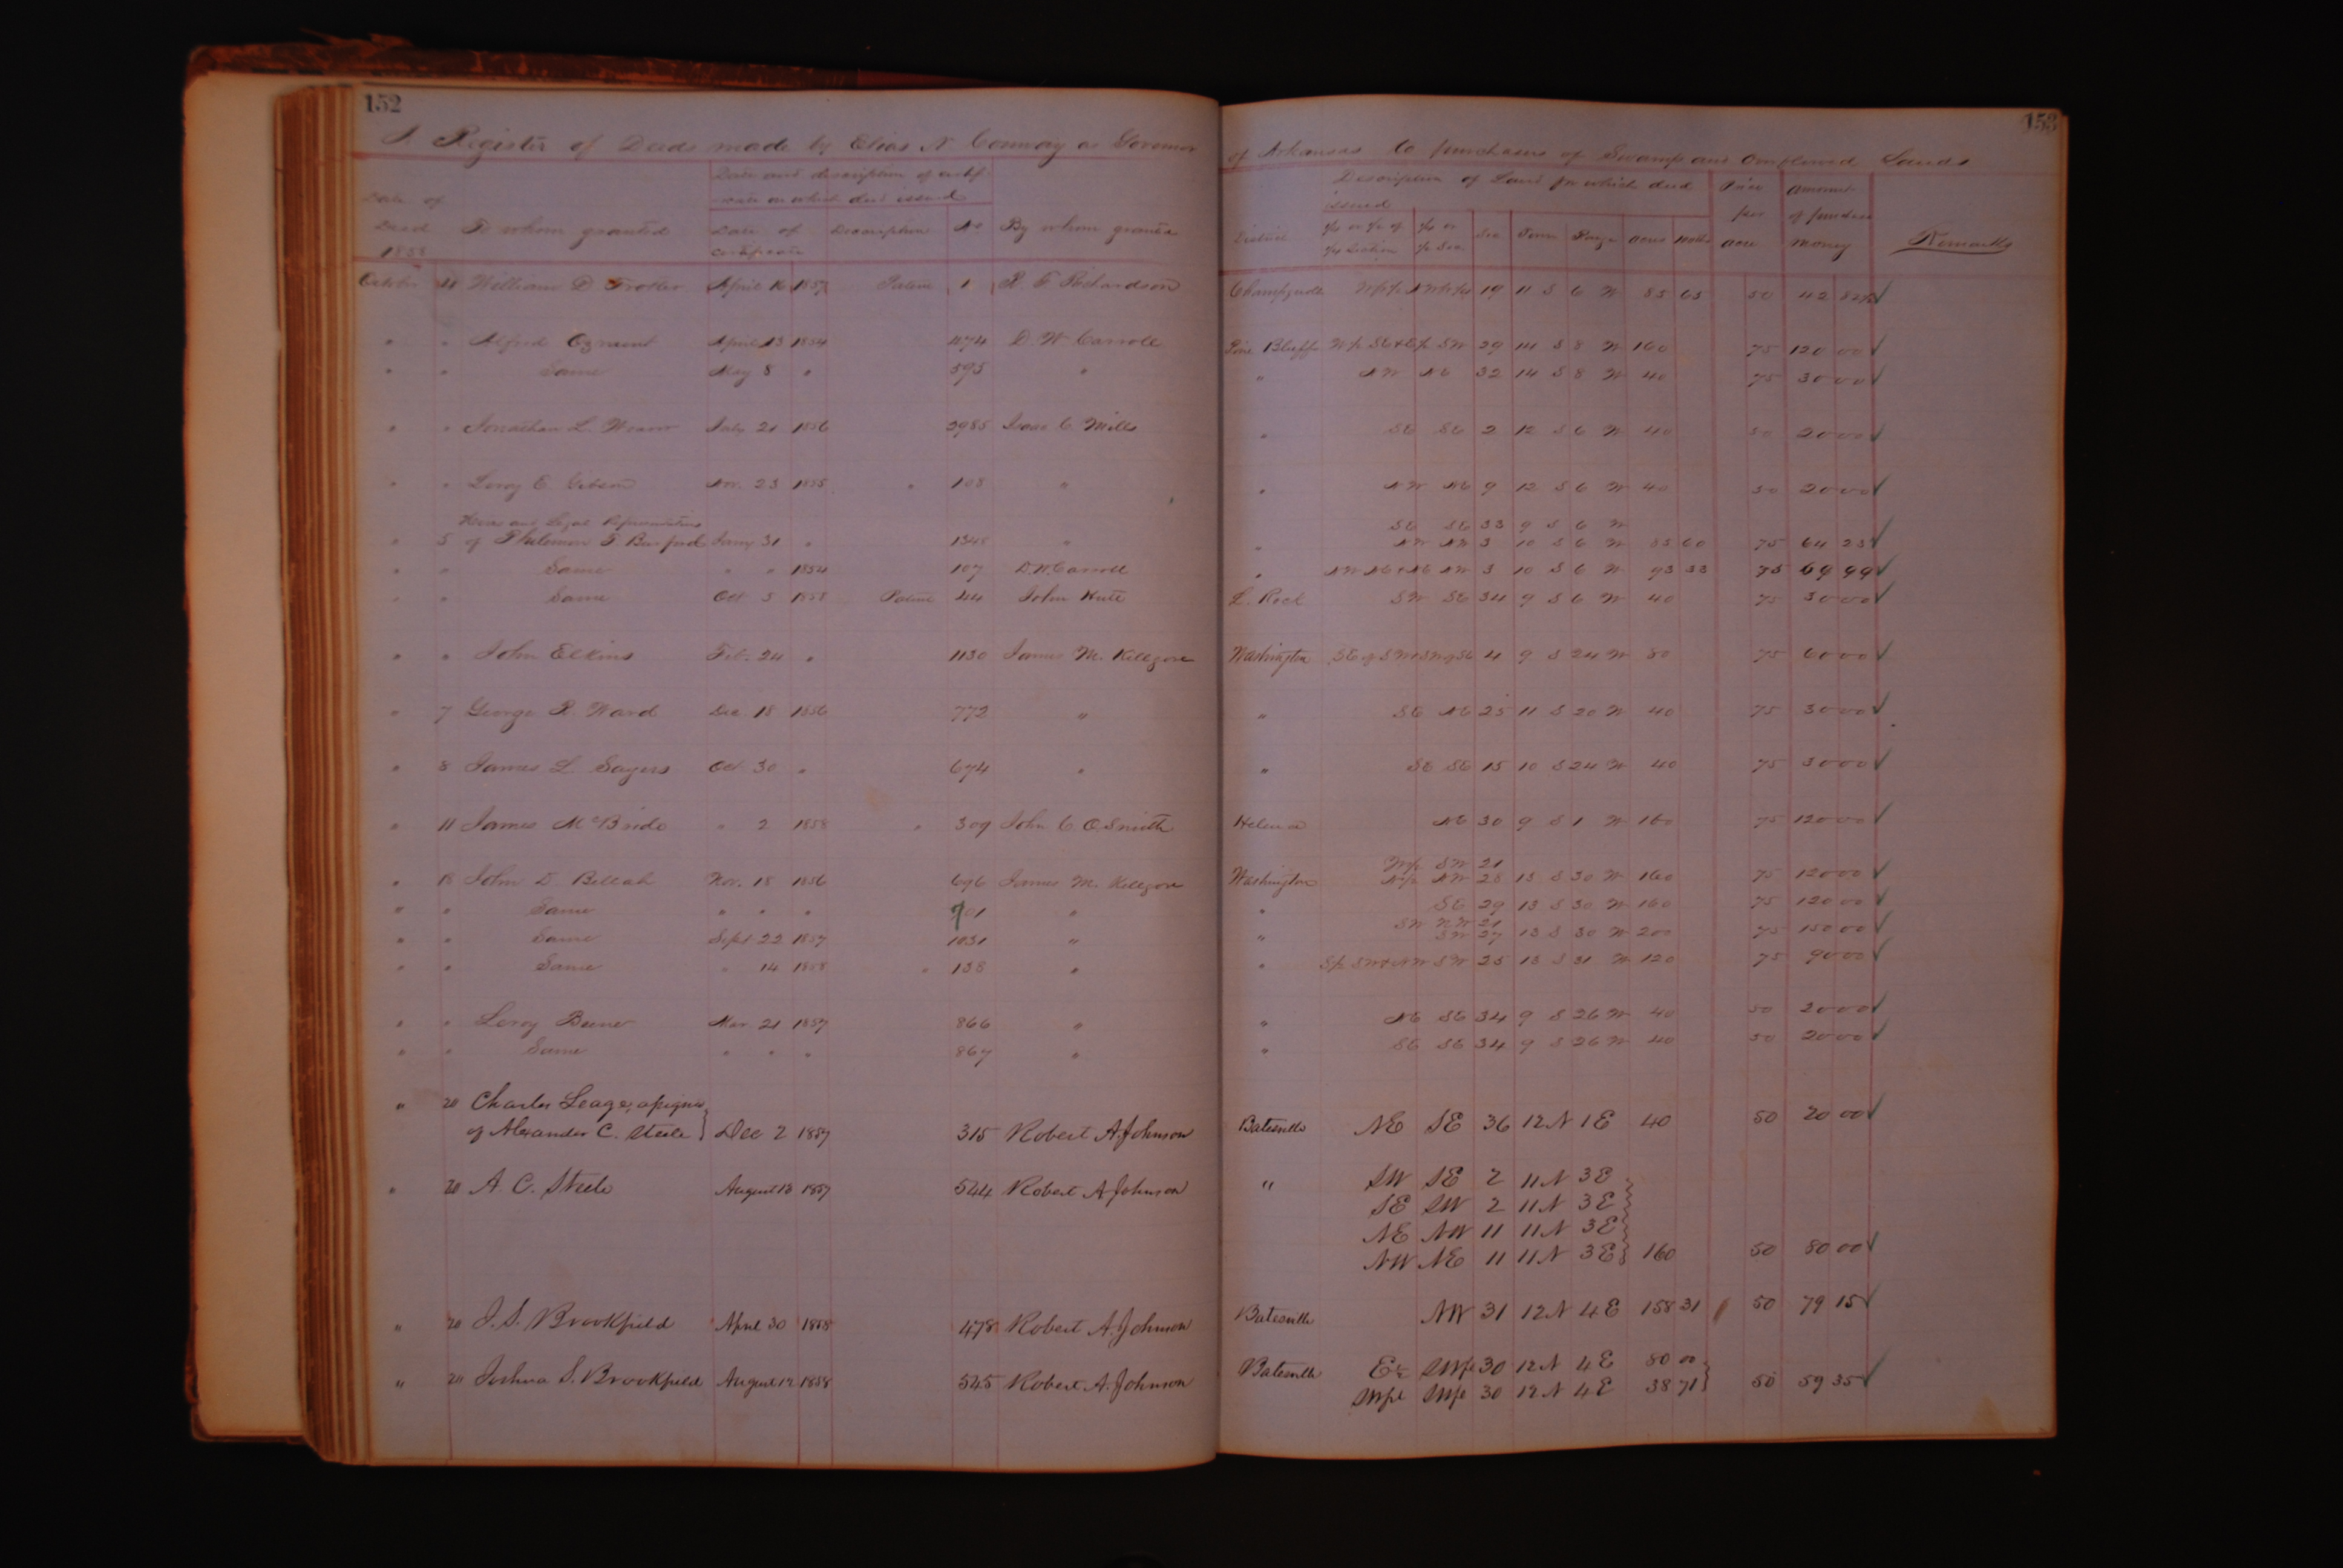 152
153
A Register of Deeds made by Elias N Conway as Governor of Arkansas to purchasers of Swamp and Overflowed Lands
Date of Deed 1858 To whom granted Date and description of certificate on which deed issued Date of certificate Description No By whom granted District Description of Land for which deed issued Sec Town Range acres Price per acre Amount of purchase money Remarks
October William D Trotter April 16 1857 Patent 1 R. F. Richardson Champagnolle 19 11 S 6 W 85 65 50 42 82½ ✓
" " Alfred Ozment April 13 1854 474 D. W Carroll Pine Bluff W½ SE & E½ SW 29 14 S 8 W 160 75 120 00 ✓
" " Same May 8 " 595 " " NW NE 32 14 S 8 W 40 75 30 00 ✓
" " Jonathan L. July 21 1856 3985 Isaac C Mills " SE SE 2 12 S 6 W 40 50 20 00 ✓
" " Leroy E Gibson Nov. 23 1855 " 108 " " NW NE 9 12 S 6 W 40 50 20 00 ✓
Heirs and Legal Representatives SE SE 33 9 S 6 W
" 5 of Philemon T. Burford Jany 31 " 1348 " " NW NW 3 10 S 6 W 85 60 75 64 23 ✓
" " Same " " 1854 107 D.W. Carroll " NW NE & NE NW 3 10 S 6 W 93 33 75 69 99 ✓
" " Same Oct 5 1858 Patent 44 John Hutt L. Rock SW SE 34 9 S 6 W 40 75 30 00 ✓
" " John Elkins Feb. 24 " 1130 James M. Killgore Washington SE of SW & SW of SE 4 9 S 24 W 80 75 60 00 ✓
" 7 George R. Ward Dec. 18 1856 772 " " SE NE 25 11 S 20 W 40 75 30 00 ✓
" 8 James L. Sayers Oct 30 " 674 " " SE SE 15 10 S 24 W 40 75 30 00 ✓
" 11 James McBride " 2 1858 " 309 John C. O. Smith Helena NE 30 9 S 1 W 160 75 120 00 ✓
W½ SW 21
" 18 John D. Bellah Nov. 18 1856 696 James M. Killgore Washington N½ NW 28 13 S 30 W 160 75 120 00 ✓
" " Same " " " 701 " " SE 29 13 S 30 W 160 75 120 00 ✓
SW NW 21
" " Same Sept 22 1857 1031 " " SW 27 13 S 30 W 200 75 150 00 ✓
" " Same " 14 1858 " 138 " " S½ SW & NW SW 25 13 S 31 W 120 75 90 00 ✓
" " Leroy Beene Mar 21 1857 866 " " NE SE 34 9 S 26 W 40 50 20 00 ✓
" " Same " " " 867 " " SE SE 34 9 S 26 W 40 50 20 00 ✓
" 20 Charles Leage, assignee
of Alexander C. Steele } Dec 2 1857 315 Robert A. Johnson Batesville NE SE 36 12 N 1 E 40 50 20 00 ✓
" 20 A. C. Steele August 13 1857 544 Robert A Johnson " SW SE 2 11 N 3 E
SE SW 2 11 N 3 E
NE NW 11 11 N 3 E
NW NE 11 11 N 3 E } 160 50 80 00 ✓
" 20 J. S. Brookfield April 30 1858 478 Robert A. Johnson Batesville NW 31 12 N 4 E 158 31 50 79 15 ✓
" 20 Joshua S. Brookfield August 12 1858 545 Robert A. Johnson Batesville E½ SW¼ 30 12 N 4 E 80 00
SW¼ SW¼ 30 12 N 4 E 38 71 } 50 59 35 ✓